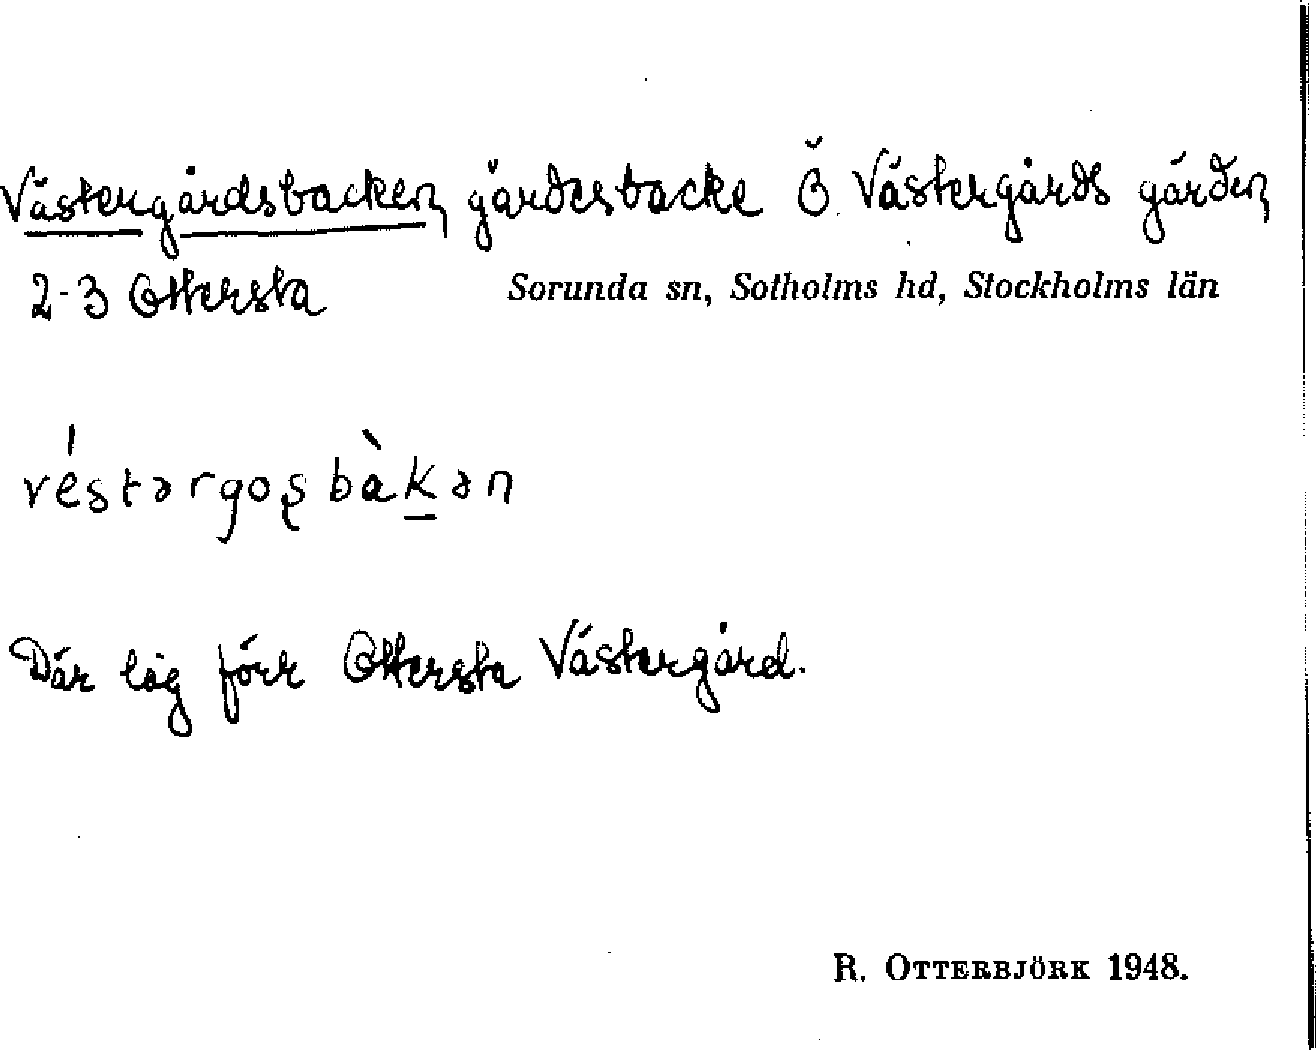 Västergårdsbacken, gärdesbacke Ö Västergårds gärden,
2-3 Ottersta Sorunda sn, Sotholms hd, Stockholms län
véstərgoʂbàkən
Där låg förr Ottersta Västergård.
R. OTTERBJÖRK 1948.